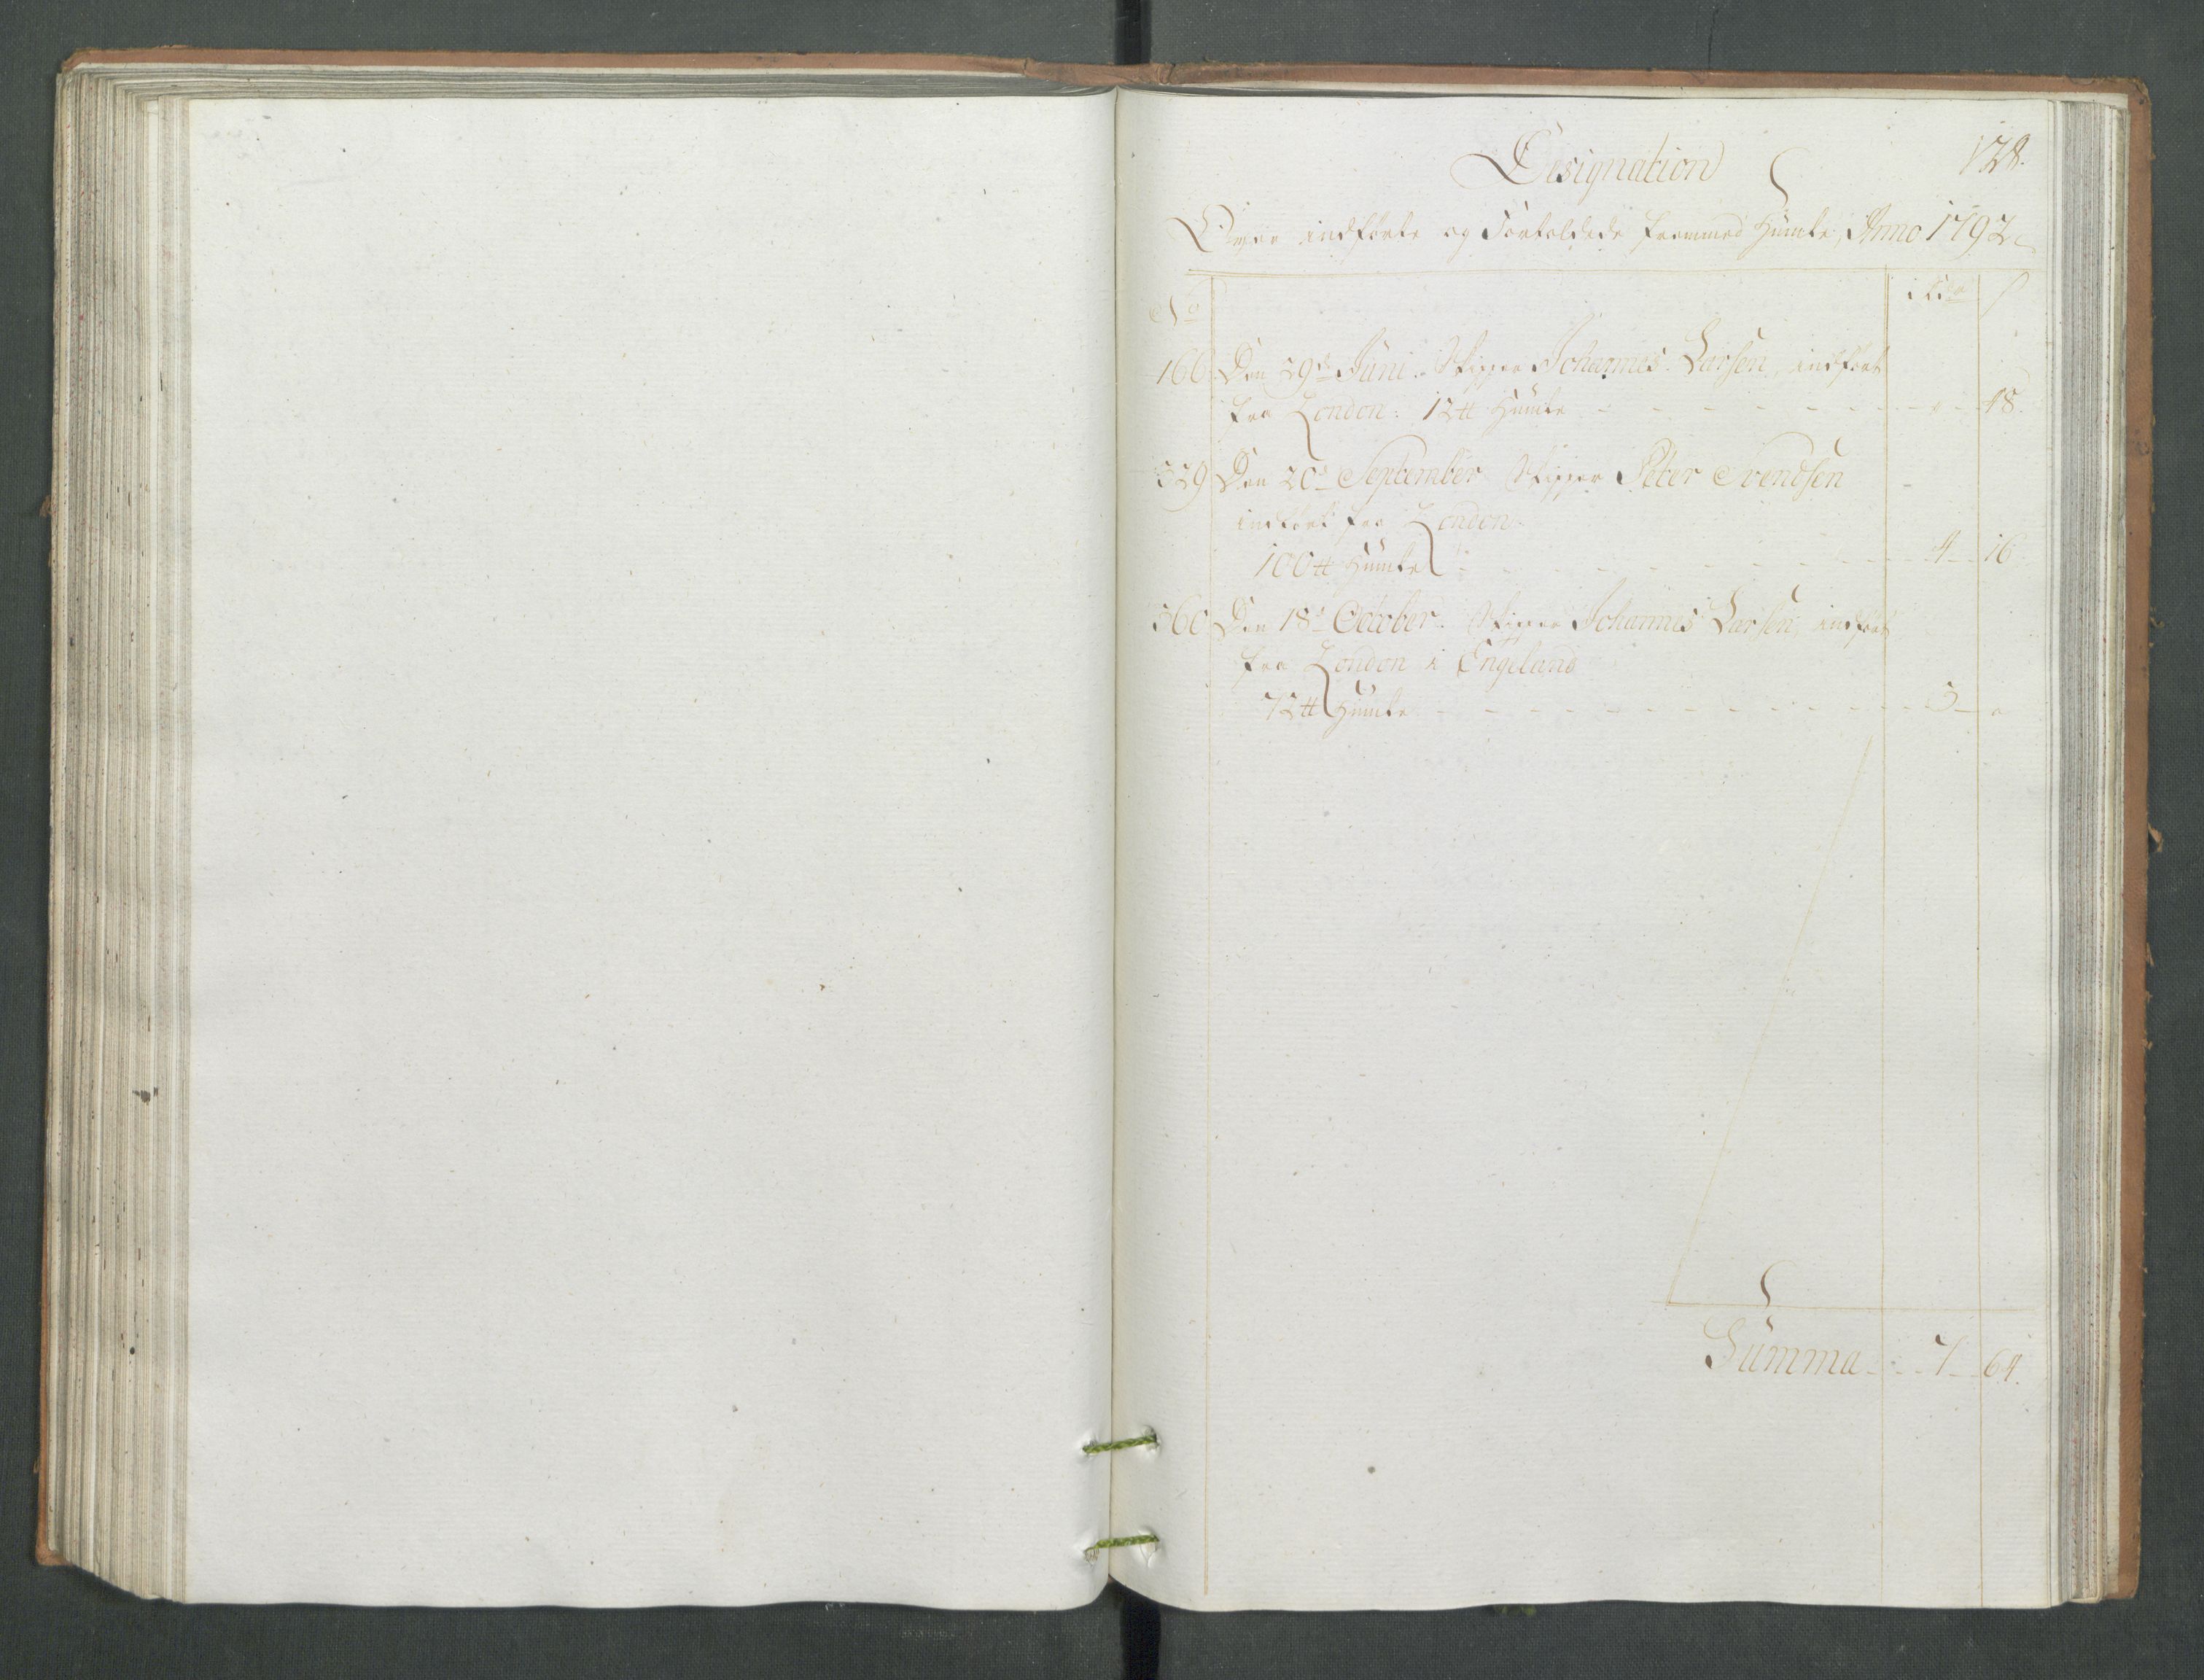 128.
Designation
Over indførte og Fortoldede fremmed Humle, Anno 1792
No Rdr ß
166 Den 29de Juni. Skipper Johannes Larsen, indført
fra London: 12 ℔ Humle - - - 48.
329 Den 20de September Skipper Peter Svendsen
indført fra London.
100 ℔ Humle - - - 4 - 16
360 Den 18de October. Skipper Johannes Larsen, indført
fra London i Engeland
72 ℔ Humle - - - 3 - "
Summa - - - 7 - 64.